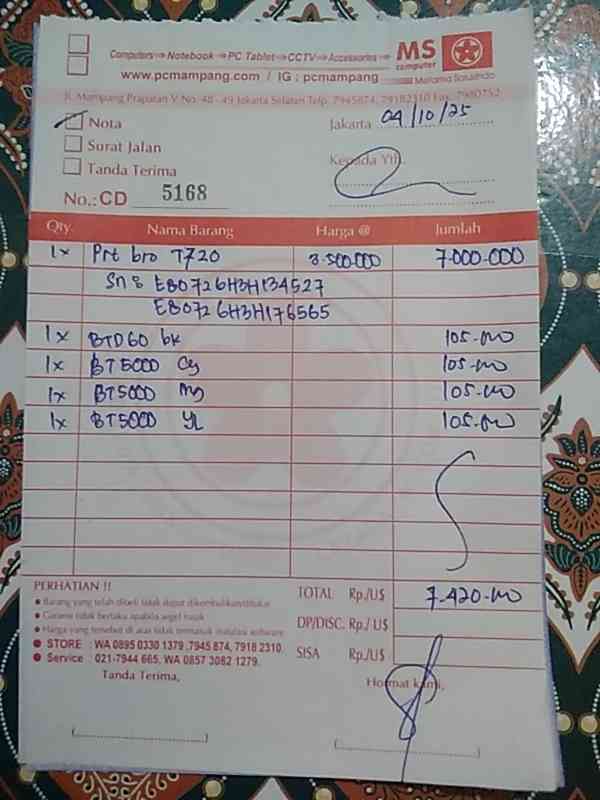 Computers Notebook PC Tablet CCTV Accessories
MS
computer
www.pcmampang.com / IG : pcmampang
Metama Solusindo
Jl. Mampang Prapatan V No. 48 - 49 Jakarta Selatan Telp. 7945874, 79182310 Fax. 7980752
Nota
Jakarta 04/10/25
Surat Jalan
Kepada Yth.
Tanda Terima
No.: CD 5168
Qty. Nama Barang Harga @ Jumlah
1x Prt bro T720 3.500.000 7.000.000
Sn : E80726H3H134527
E80726H3H176565
1x BTD60 bk 105.000
1x BT5000 Cy 105.000
1x BT5000 Mg 105.000
1x BT5000 YL 105.000
PERHATIAN !!
• Barang yang telah dibeli tidak dapat dikembalikan/ditukar
• Garansi tidak berlaku apabila segel rusak
• Harga yang tersebut di atas tidak termasuk instalasi software
• STORE : WA 0895 0330 1379 .7945 874, 7918 2310.
• Service : 021-7944 665, WA 0857 3082 1279.
TOTAL Rp./U$ 7.420.000
DP/DISC. Rp./ U$
SISA Rp./U$
Tanda Terima,
Hormat kami,